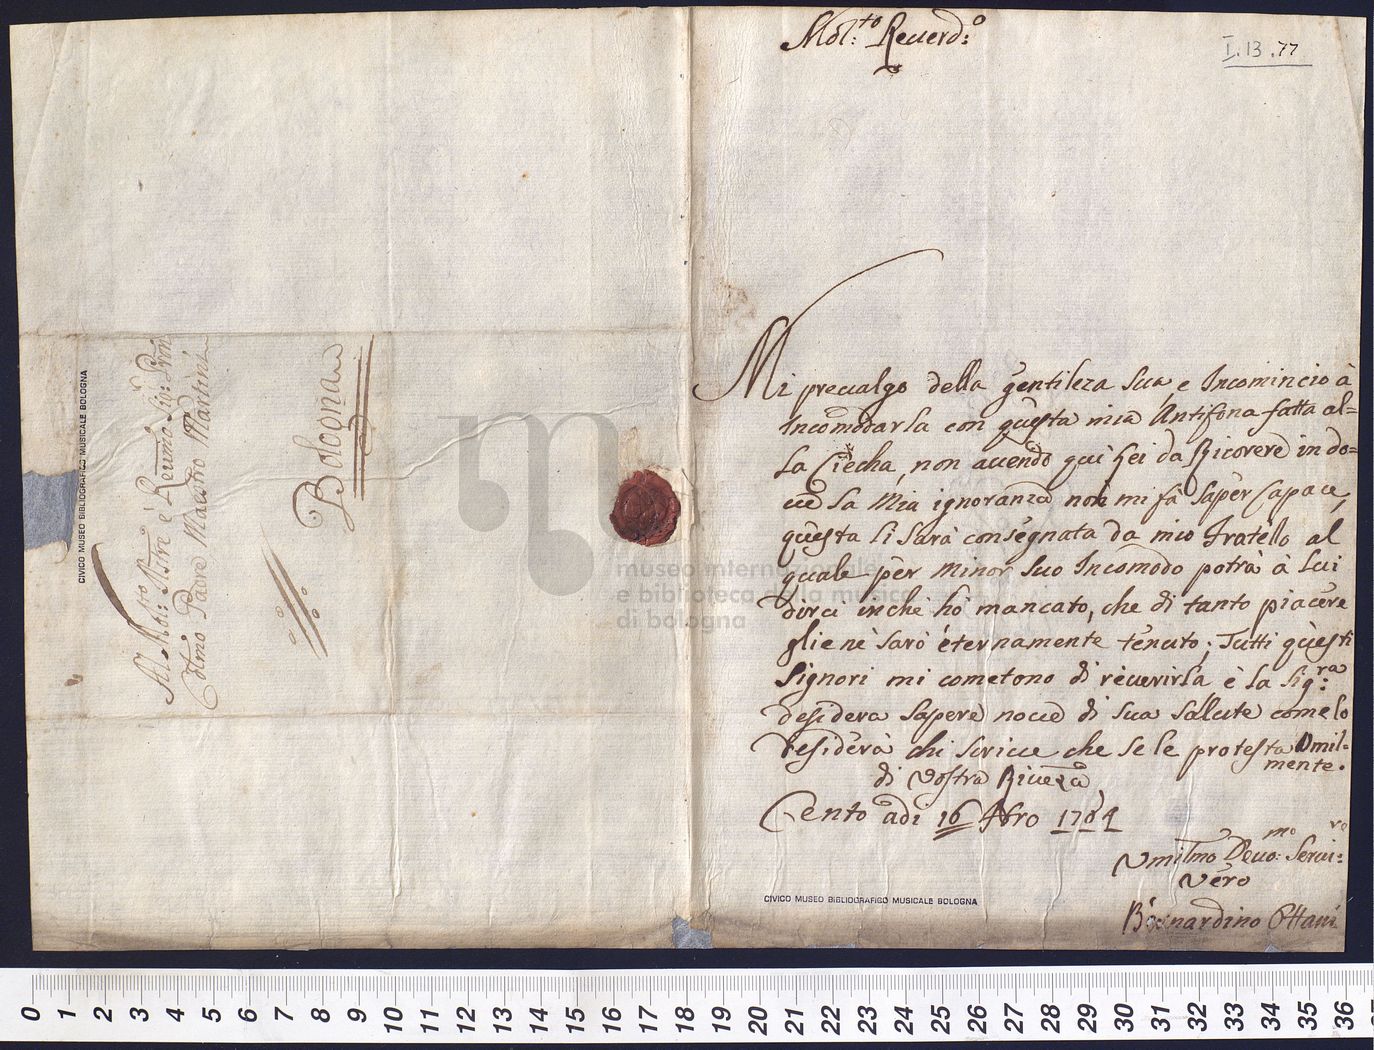 Al Mol:to Ilstre è Reumo Sig: Pron
Colmo Padre Maestro Martini
Bologna
CIVICO MUSEO BIBLIOGRAFICO MUSICALE BOLOGNA
Mol:to Reuerd:o
I.13.77
Mi preualgo della gentileza Sua e Incomincio à
Incomodarla con questa mia Antifona fatta al=
la Ciecha, non auendo qui Lei da Ricorere in do=
ue la Mia ignoranza non mi fà saper Capace,
questa li sarà consegnata da mio Fratello al
quale per minor suo Incomodo potrà à Lui
dirci in che hò mancato, che di tanto piacere
gliene sarò eternamente tenuto; Tutti questi
Signori mi cometono di riuerirla è la Sig:ra
desidera sapere noue di sua Sallute come lo
desidera chi scriue che se le protesta Umil=
mente.
di Vostra Riueza
Cento adi 16 Abro 1764
Vmilmo Deuo:mo Serui:ro
Vero
Bernardino Ottani
CIVICO MUSEO BIBLIOGRAFICO MUSICALE BOLOGNA
museo internazionale
e biblioteca della musica
di bologna
0 1 2 3 4 5 6 7 8 9 10 11 12 13 14 15 16 17 18 19 20 21 22 23 24 25 26 27 28 29 30 31 32 33 34 35 36